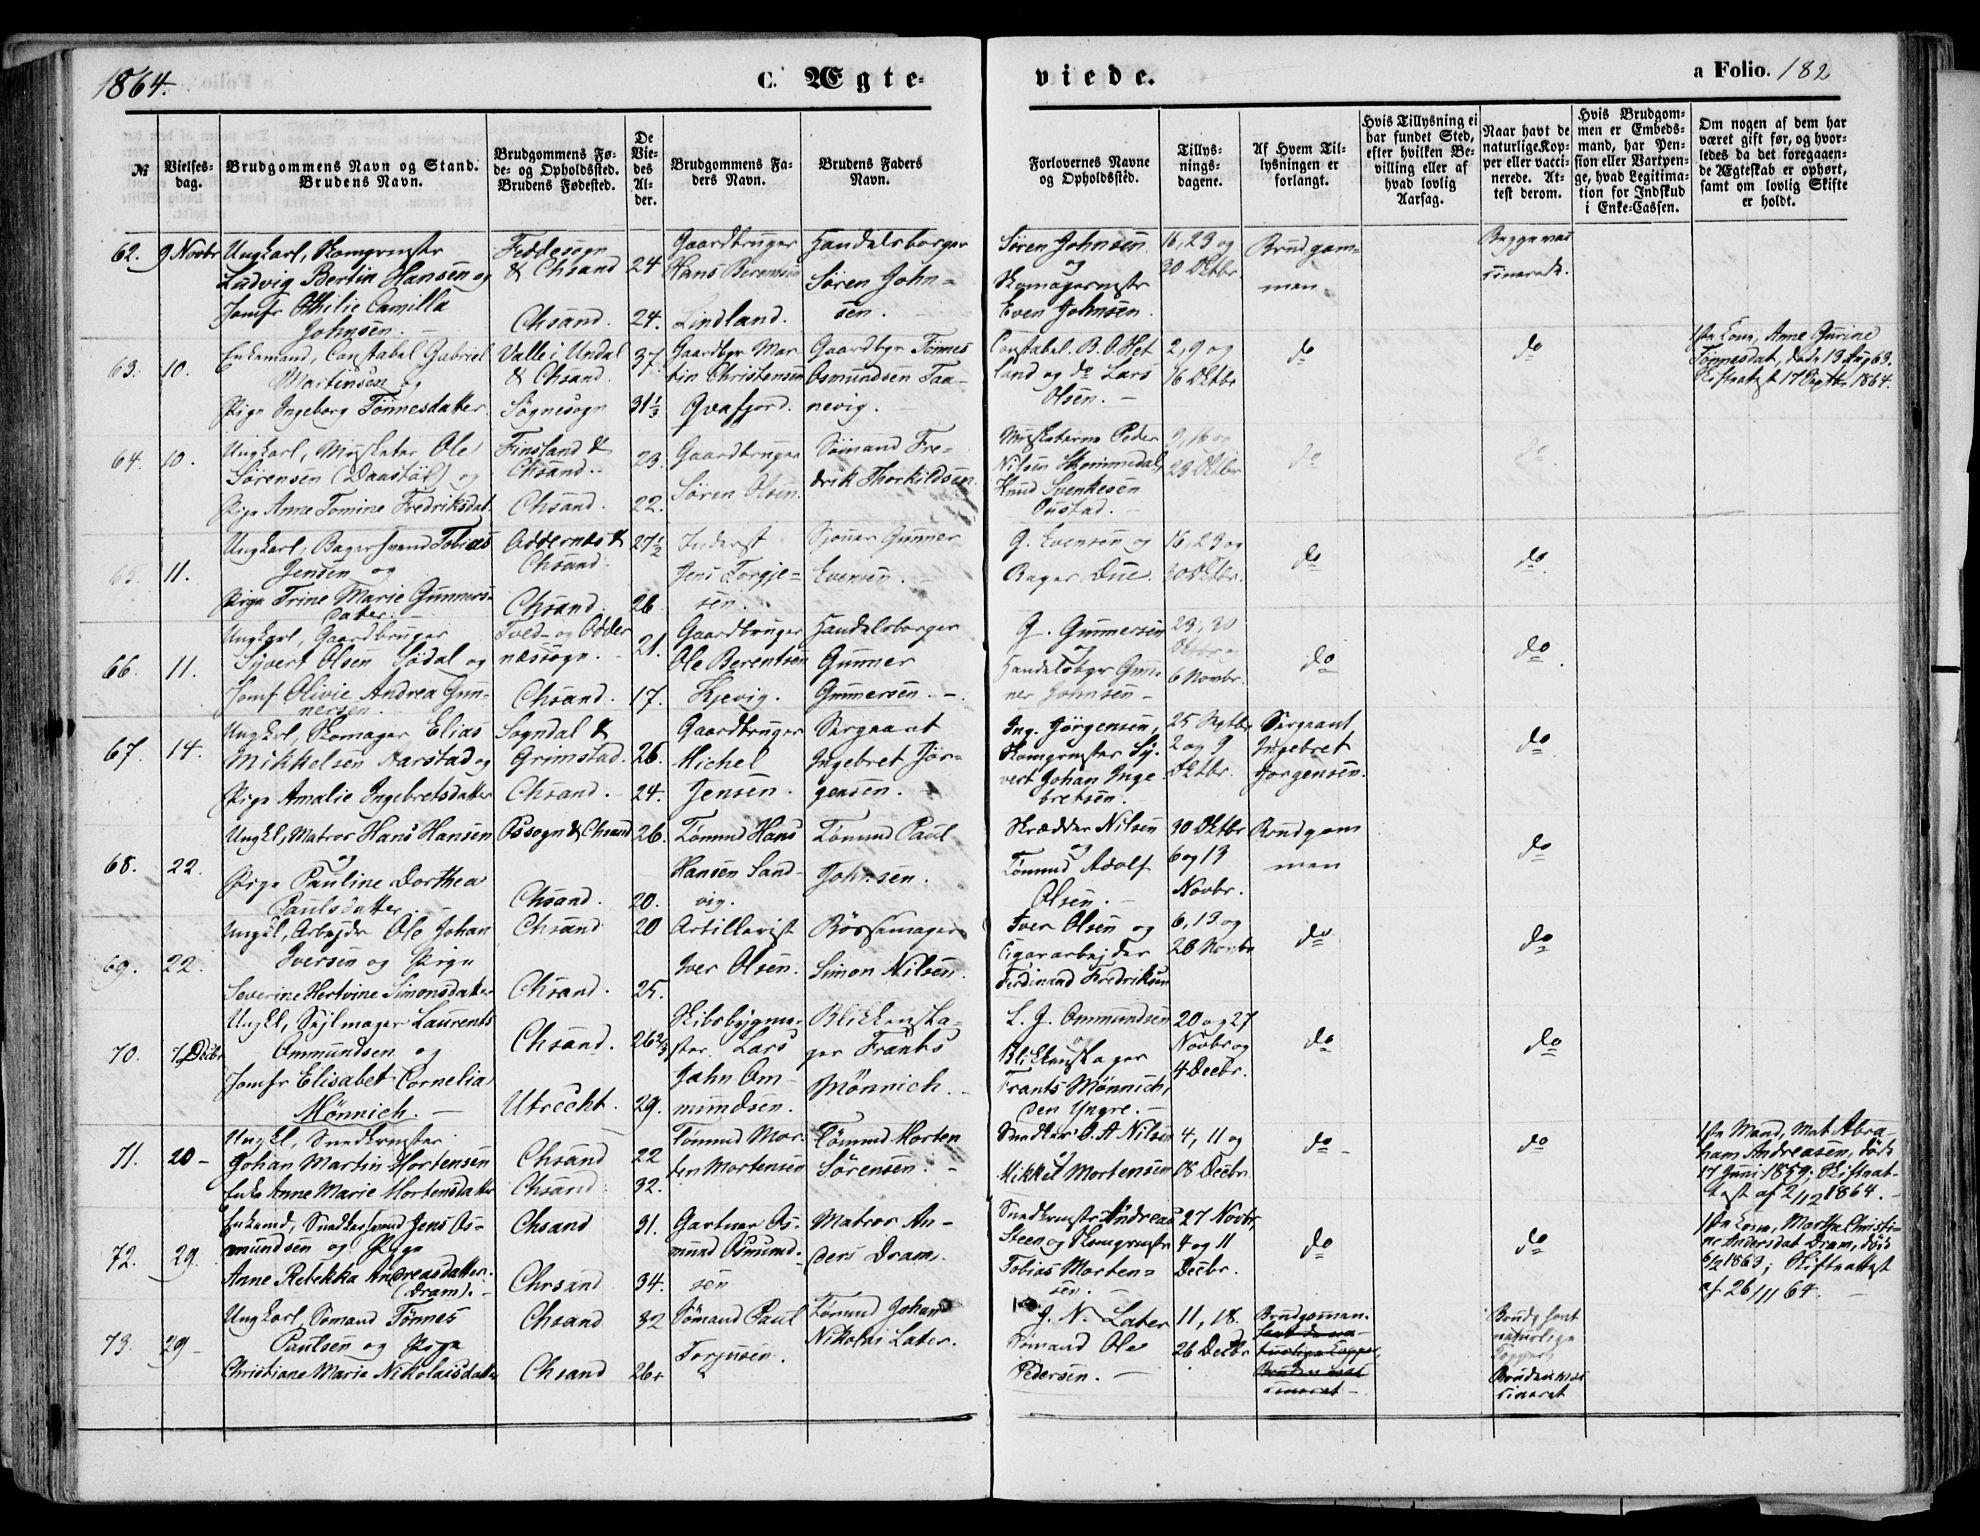 1864.
C. Ægte-
viede.
a Folio. 182
№
Vielses-
dag.
Brudgommens Navn og Stand.
Brudens Navn.
Brudgommens Fø-
de- og Opholdssted.
Brudens Fødested.
De
Vie-
des
Al-
der.
Brudgommens Fa-
ders Navn.
Brudens Faders
Navn.
Forlovernes Navne
og Opholdssted.
Tillys-
nings-
dagene.
Af Hvem Til-
lysningen er
forlangt.
Hvis Tillysning ei
har fundet Sted,
efter hvilken Be-
villing eller af
hvad lovlig
Aarsag.
Naar havt de
naturlige Kop-
per eller vacci-
nerede. At-
test derom.
Hvis Brudgom-
men er Embeds-
mand, har Pen-
sion eller Vartpen-
ge, hvad Legitima-
tion for Indskud
i Enke-Cassen.
Om nogen af dem har
været gift før, og hvor-
ledes da det foregaaen-
de Ægteskab er ophørt,
samt om lovlig Skifte
er holdt.
62. 9 Novbr
Ungkarl, Skomgrmstr
Ludvig Bertin Hansen og
Jomfr Othilie Camilla
Johnsen. —
Feddesogn
& Chsand
Chsand.
24
24.
Gaardbruger
Hans Berentsen
Lindland.
Handelsborger
Søren John-
sen.
Søren Johnsen
og
Skomagermstr
Even Johnsen.
16, 23 og
30 Oktbr
Brudgom-
men
Begge vac
cinerede.
63. 10.
Enkemand, Constabel Gabriel
Martinsen og
Pige Ingeborg Tönnesdatter.
Valle i Undal
& Chsand.
Søgnesogn
37.
31 1/3
Gaardbgr Mar-
tin Christensen
Qvafjord.
Gaardbgr Tönnes
Osmundsen Taa-
nevig.
Constabel B. O. Het
land og do Lars
Olsen. —
2, 9 og
16 Oktbr
do
do
1ste Kone, Anne Gurine
Tönnesdat, døde 13 Aug 63.
Skifteattest 17 Septbr 1864.
64. 10.
Ungkarl, Musketer Ole
Sørensen (Daastöl) og
Pige Anne Tomine Fredriksdat.
Finsland &
Chsand.
Chsand.
23.
22.
Gaardbruger
Søren Olsen.
Sømand Fre-
drik Thorkildsen.
Musketerne Peder
Nilsen Skommedal,
Knud Svenkesen
Oustad. —
9, 16 og
23 Oktbr
do
do
65. 11.
Ungkarl, Bagersvend Tobias
Jensen og
Pige Trine Marie Gunners-
datter. —
Oddernæs &
Chsand.
Chsand.
27 1/2
26.
Inderst
Jens Torgje-
sen.
Sjouer Gunner
Evensen.
G. Evensen og
Bager Due.
16, 23 og
30 Oktbr.
do
do
66. 11.
Ungkarl, Gaardbruger
Syvert Olsen Södal og
Jomf Olivie Andrea Gun-
nersen.
Tved- og Odder
næssogn.
Chsand.
21.
17.
Gaardbruger
Ole Berentsen
Kjevig.
Handelsborger
Gunner
Gunnersen. —
G. Gunnersen
og
Handelsbgr Gun-
ner Johnsen —
23, 30
Oktbr og
6 Novbr.
do
do
67. 14.
Ungkarl, Skomager Elias
Mikkelsen Aarstad og
Pige Amalie Ingebretsdatter
Sogndal &
Grimstad.
Chsand.
26.
24.
Gaardbruger
Michel
Jensen.
Sergeant
Ingebret Jør-
gensen.
Ing. Jørgensen,
Skomgrmster Sy-
vert Johan Inge-
bretsen.
25 Septbr
2 og 9
Oktbr.
Sergeant
Ingebret
Jørgensen.
do
68. 22.
Ungkl, Matros Hans Hansen
og
Pige Pauline Dorthea
Paulsdatter.
Ossogn & Chsand
Chsand.
26.
20.
Tømmd Hans
Hansen Sand-
vig.
Tømmd Paul
Johnsen.
Skrædder Nilsen
og
Tømmd Adolf
Olsen. —
30 Oktbr
6 og 13
Novbr.
Brudgom
men
do
69. 22.
Ungkl, Arbejdr Ole Johan
Iversen og Pige
Severine Hertvine Simonsdatter
Chsand
Chsand.
20
25.
Artillerist
Iver Olsen.
Børssemager
Simon Nilsen.
Iver Olsen og
Cigararbejder
Ferdinand Fredriksen
6, 13 og
20 Novbr
do
do
70. 7 Decbr
Ungkl, Sejlmager Laurents
Ommundsen og
Jomfr Elisabet Cornelia
Mönnich. —
Chsand.
Utrecht.
26 2/3
29.
Skibsbygme-
ster Lars
Jahn Om-
mundsen.
Blikkensla-
ger Frants
Mönnich.
L. J. Ommundsen
og
Blikkenslager
Frants Mönnich,
den Yngre. —
20 og 27
Novbr og
4 Decbr.
do
do
71. 20 —
Ungkl, Snedkrmster
Johan Martin Mortensen
Enke Anne Marie Mortensdatter
Chsand
Chsand
22
32.
Tømmd Mor-
ten Mortensen
Tømmd Morten
Sørensen. —
Snedker O. A Nilsen
Mikkel Mortensen
4, 11 og
18 Decbr
do —
do
1ste Mand, Mat. Abra-
ham Andreasen, døde
17 Juni 1859; Skifteat-
test af 2/12 1864. —
72. 29.
Enkmd, Snedkersvend Jens Os-
mundsen og Pige
Anne Rebekka Andreasdatter
(Dram). —
Chsand
Chrsand
31.
34.
Gartner Os-
mund Osmund-
sen
Matros An-
ders Dram.
Snedkrmstr Andreas
Steen og Skomgrmstr
Tobias Morten-
sen. —
27 Novbr
4 og 11
Decbr.
do
do
1ste Kone, Marthe Christi-
ne Andersdat Dram, døde
6/2 1863; Skifteattest
af 26/11 64. —
73. 29 —
Ungkarl, Sømand Tönnes
Paulsen og Pige
Christiane Marie Nikolaisdatter
Chsand
Chsand
32
26.
Sømand Paul
Torjusen.
Tømmd Johan
Nikolai Later.
J. N. Later
Sømand Ole
Pedersen. —
11, 18.
26 Decbr
Brudgomen.
havt de na-
turlige Copper,
Bruden vac
cineret —
Brudg havt
naturlige
Copper,
Bruden vac
cineret